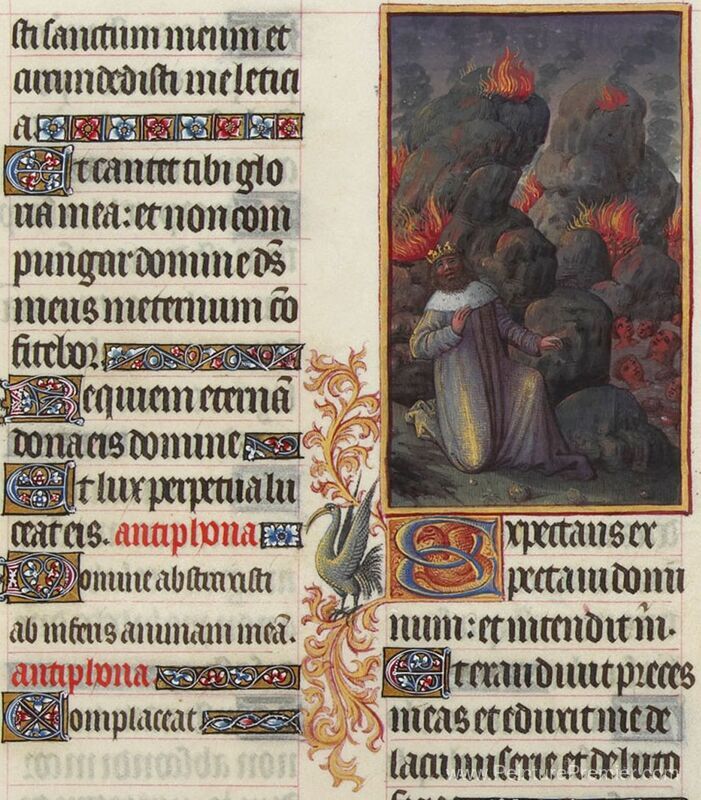 sti sanctum meum et
circundedisti me letici
a
Et cantet tibi glo
ria mea: et non com
pungar domine ds̄
meus in eternum cō
fitebor
Requiem eternā
dona eis domine
Et lux perpetua lu
ceat eis. antiphona
Domine abstraxisti
ab inferis animam meā.
antiphona
Complaceat
Expectans ex
pectaui domi
num: et intendit m̄.
Et exaudiuit preces
meas et eduxit me de
lacu miserie et de luto